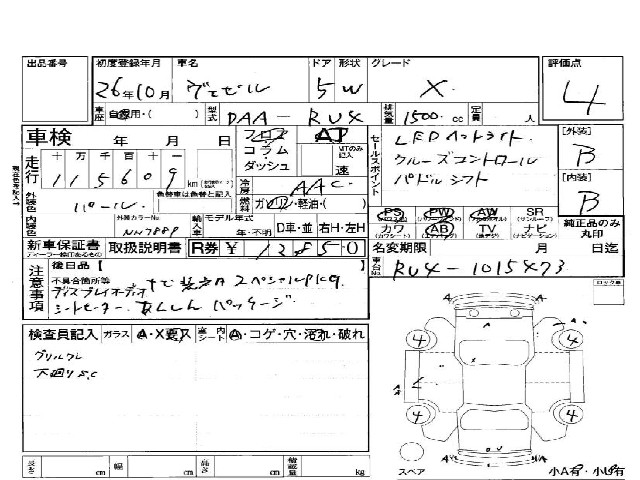 出品番号 初度登録年月 車名 ドア 形状 グレード 評価点
26年10月 ヴェゼル 5 W X 4
車歴 自家用・( ) 型式 DAA-RU4 排気量 1500 cc 定員 人
車検 年 月 日 フロア AT
コラム MTのみ記入
ダッシュ 速
走行 十 万 千 百 十 一
115609 km
冷房 AAC
セールスポイント LEDヘッドライト
クルーズコントロール
パドルシフト
[外装] B
[内装] B
外装色 パール 色替車は色替と記入 燃料 ガソリン・軽油・( )
内装色 外装カラーNo NH788P 輸入車 モデル年式 年・不明 D車・並 右H・左H
PS PW AW SR (サンルーフ)
カワ (カワシート) AB (エアバッグ) TV ナビ (ナビゲーション)
純正品のみ丸印
新車保証書 取扱説明書 R券 ¥ 名変期限 月 日迄
注意事項 後日品【
不具合箇所等
ディスプレイオーディオ
シートヒーター あんしんパッケージ
車台No. RU4-1015473
ロック車
検査員記入 ガラス A・X要R 室内シート A・コゲ・穴・汚れ・破れ
グリルワレ
下廻りS,C
4 4
4 4
長さ cm 幅 cm 高さ cm 積載量 kg
スペア 小A有・小U有